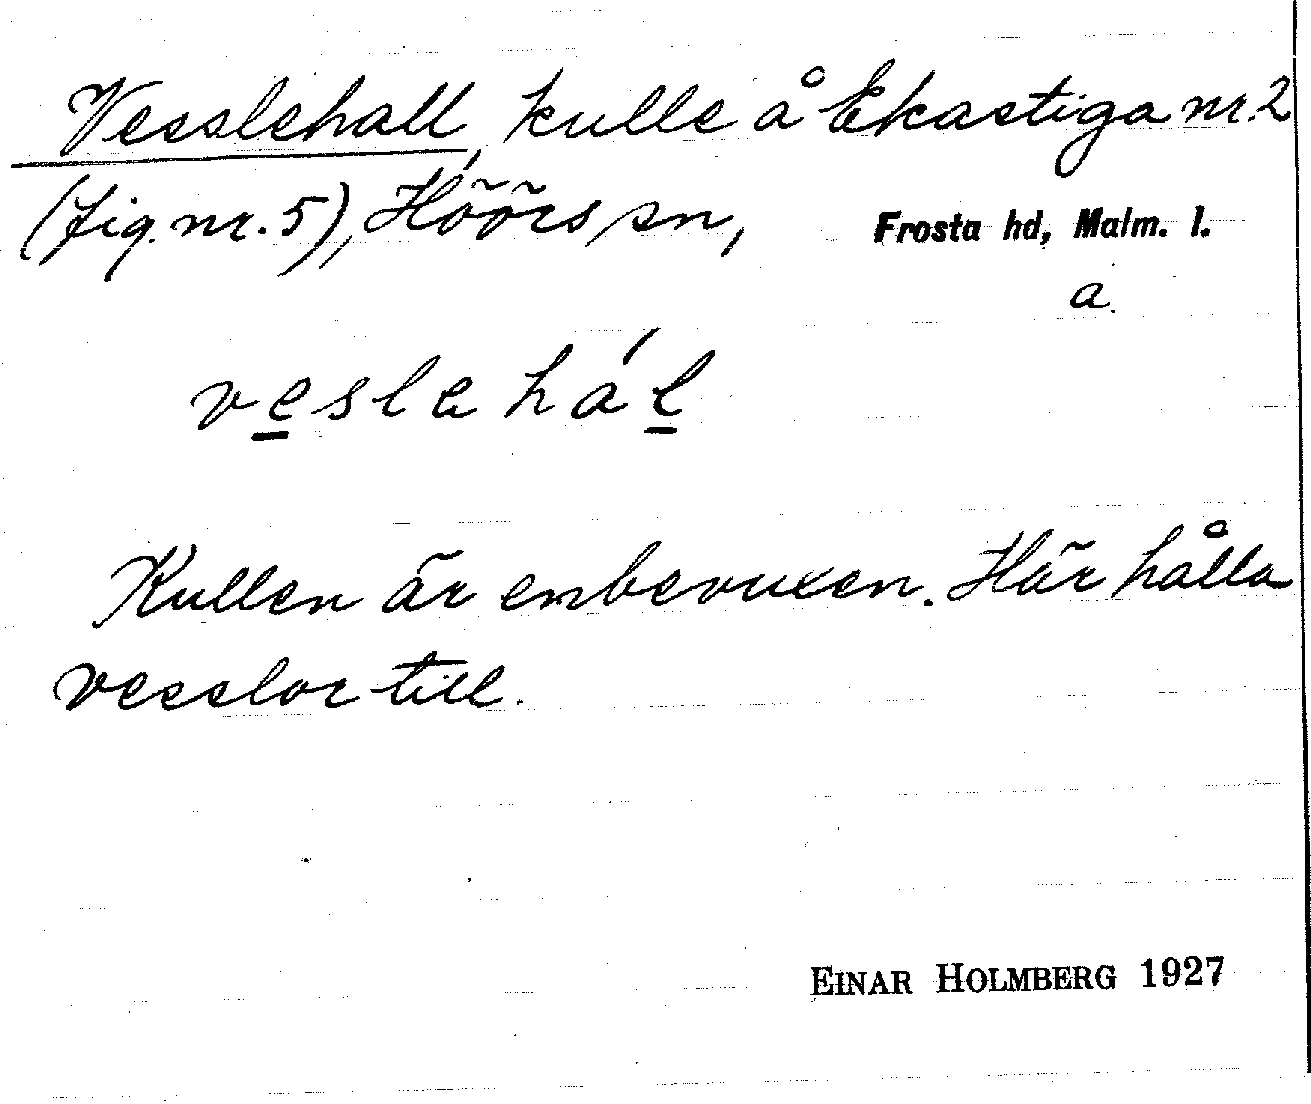 Vesslehall, kulle å Ekastiga nr. 2
(fig. nr. 5), Höörs sn, Frosta hd, Malm. l.
a.
veslahál
Kullen är enbevuxen. Här hålla
vesslor till.
EINAR HOLMBERG 1927